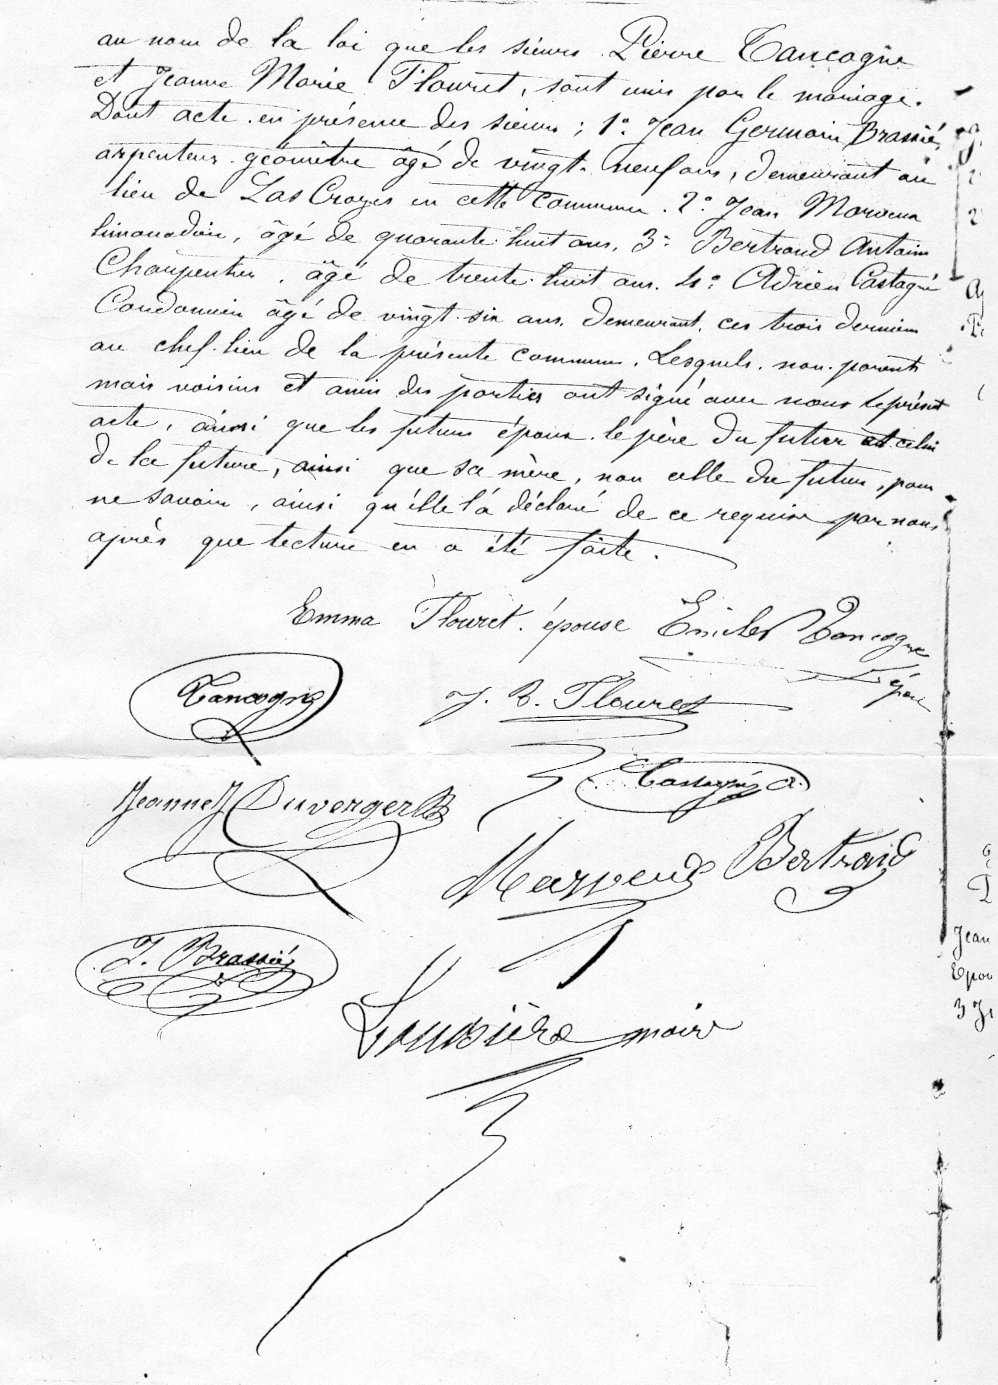 au nom de la loi que les sieurs Pierre Tancogne
et Jeanne Marie Flouret, sont unis par le mariage.
Dont acte en présence des sieurs ; 1° Jean Germain Brassié,
arpenteur géomètre âgé de vingt-neuf ans, demeurant au
lieu de Las Crozes en cette commune. 2° Jean Marveux
limonadier, âgé de quarante-huit ans, 3° Bertrand Antoine
Charpentier, âgé de trente-huit ans. 4° Adrien Castagné
Cordonnier âgé de vingt-six ans, demeurant, ces trois derniers
au chef-lieu de la présente commune. Lesquels, non parents
mais voisins et amis des parties ont signé avec nous le présent
acte, ainsi que les futurs époux, le père du futur et celui
de la future, ainsi que sa mère, non celle du futur, pour
ne savoir, ainsi qu'elle l'a déclaré de ce requise par nous,
après que lecture en a été faite.
Emma Flouret épouse Tancogne
époux
Tancogne J. B. Flouret
Castagné A.
Jeanne Duverger
Bertrand
J. Brassié
maire
Jean
3